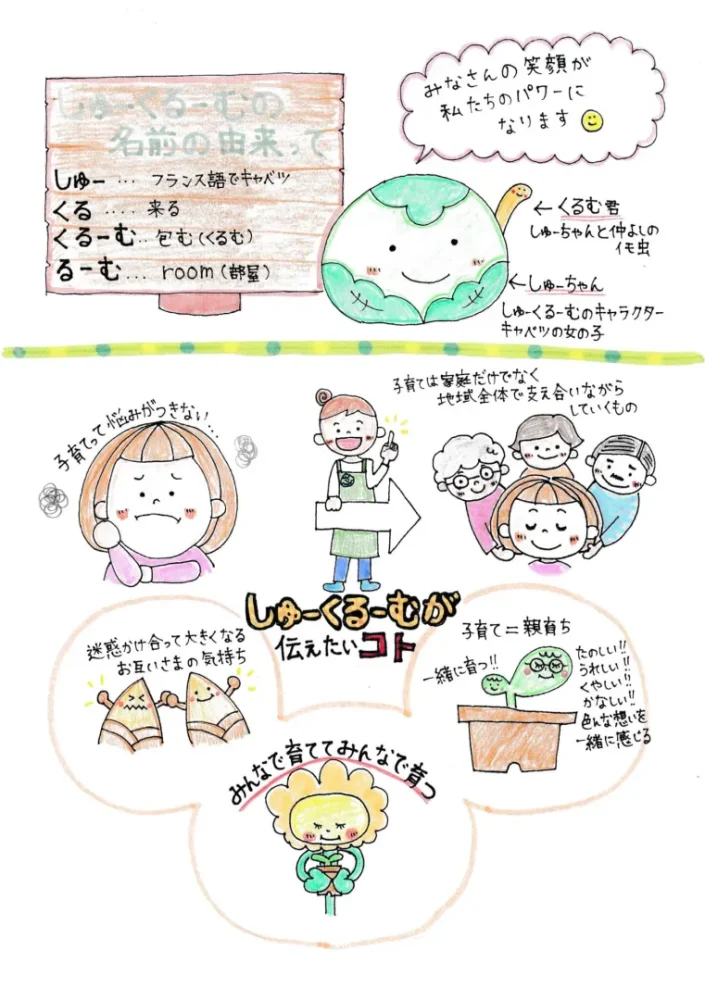 しゅーくるーむの
名前の由来って
しゅー ... フランス語でキャベツ
くる .... 来る
くるーむ .. 包む(くるむ)
るーむ ... room(部屋)
みなさんの笑顔が
私たちのパワーに
なります
←くるむ君
しゅーちゃんと仲よしの
イモ虫
←しゅーちゃん
しゅーくるーむのキャラクター
キャベツの女の子
子育てって悩みがつきない...
子育ては家庭だけでなく
地域全体で支え合いながら
していくもの
しゅーくるーむが
伝えたいコト
迷惑かけ合って大きくなる
お互いさまの気持ち
子育て=親育ち
一緒に育つ!!
たのしい!!
うれしい!!
くやしい!!
かなしい!!
色んな想いを
一緒に感じる
みんなで育ててみんなで育つ